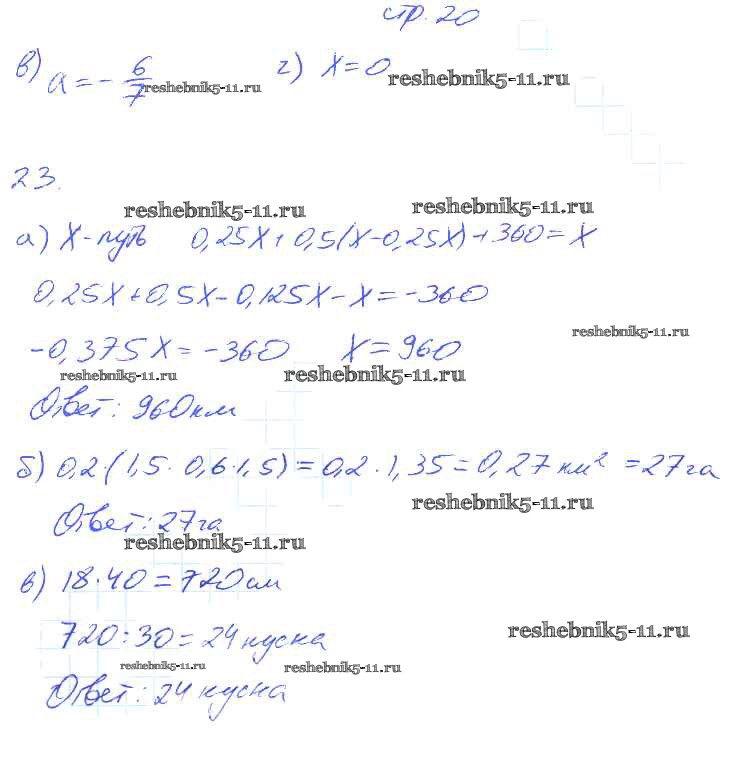 стр. 20
в) a = - 6/7 г) x = 0
reshebnik5-11.ru reshebnik5-11.ru
23.
reshebnik5-11.ru reshebnik5-11.ru
а) x - путь 0,25x + 0,5(x - 0,25x) + 360 = x
0,25x + 0,5x - 0,125x - x = -360
reshebnik5-11.ru
-0,375x = -360 x = 960
reshebnik5-11.ru reshebnik5-11.ru
Ответ: 960 км
б) 0,2 · (1,5 · 0,6 · 1,5) = 0,2 · 1,35 = 0,27 км² = 27 га
reshebnik5-11.ru
Ответ: 27 га
reshebnik5-11.ru
в) 18 · 40 = 720 см
720 : 30 = 24 куска
reshebnik5-11.ru
reshebnik5-11.ru reshebnik5-11.ru
Ответ: 24 куска